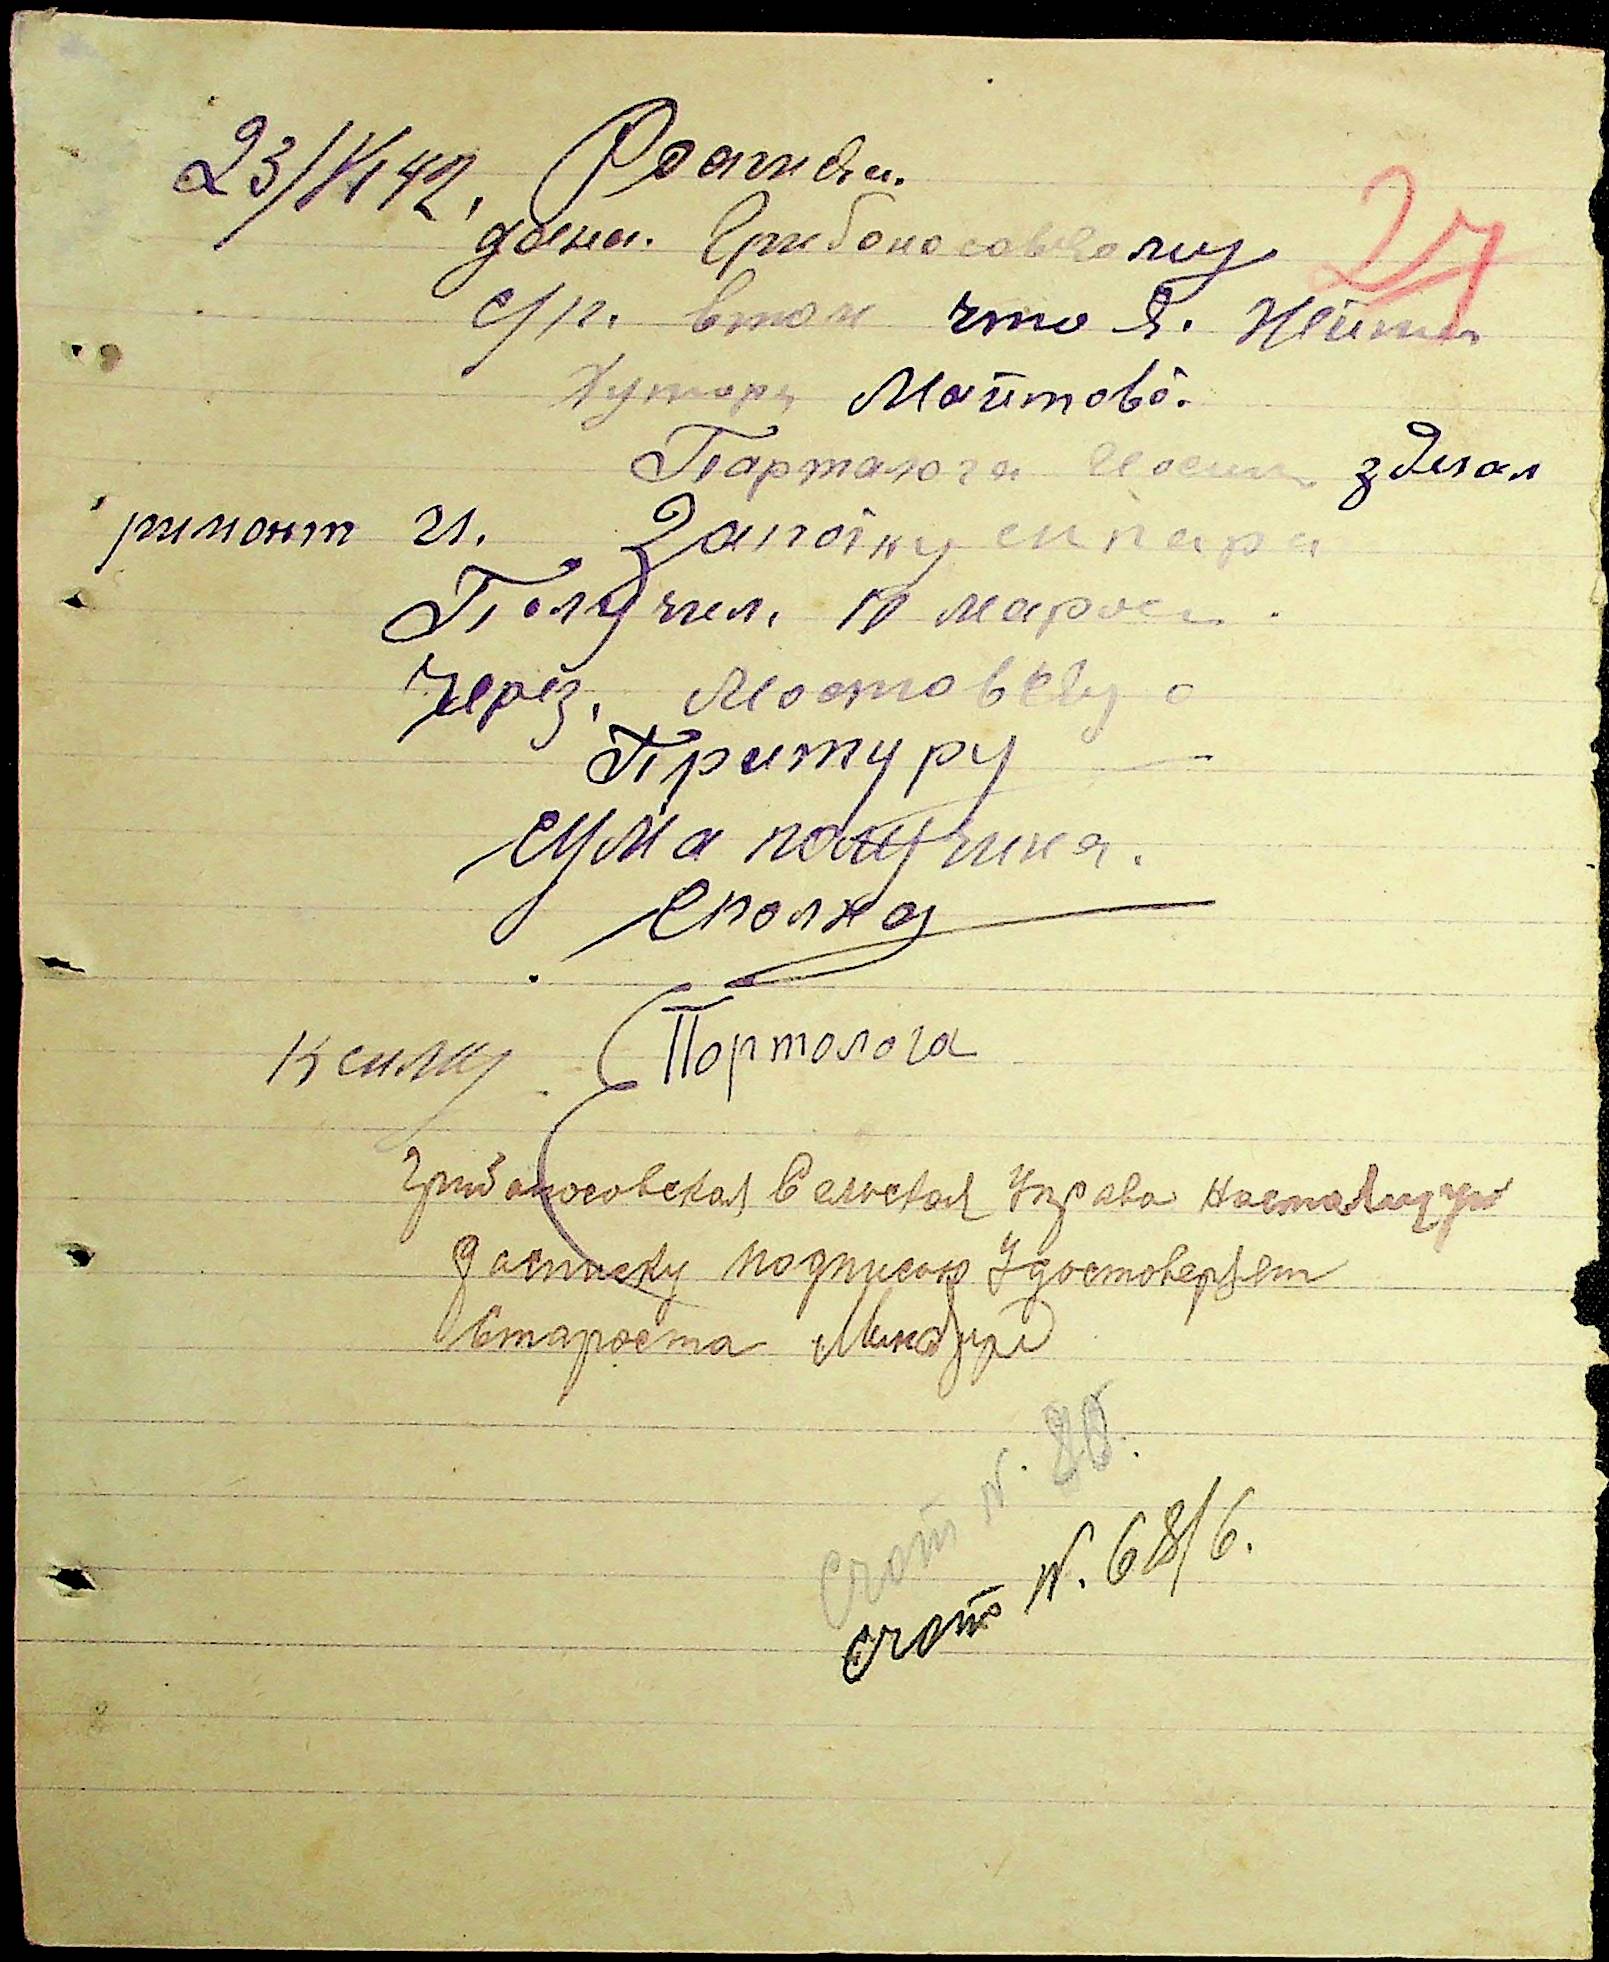 23/VI 42. Росписк.
27
дана. Грибоносовскому
с/п. втом что я. Жетил
Хутора Мойтово.
Портологи Иосип зделал
римонт и. Запойку сипара
Получил. 10 марок.
Через. Мостовску о
Притуру
сума получина.
Сполна
К сему Портолога
Грибоносовская Сельская Управа настоящую
Расписку подписью Удостоверяет
Староста
Счот N. 80.
счот N. 68/6.